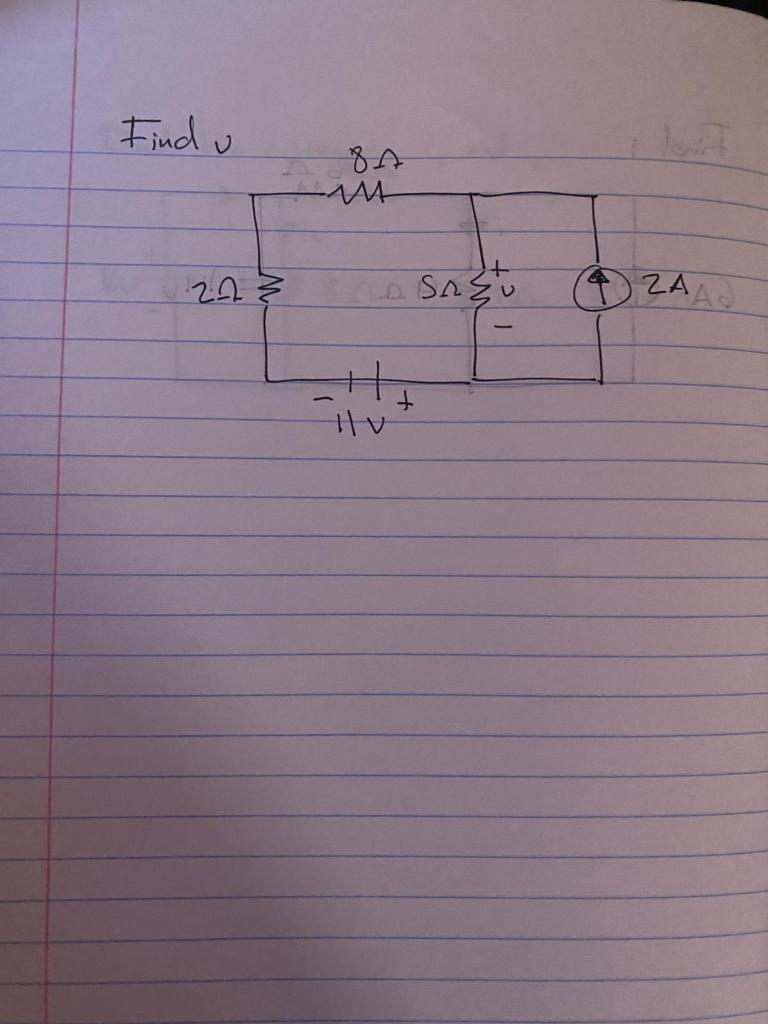 Find v
8Ω
2Ω
5Ω
+
v
-
2A
- +
11V